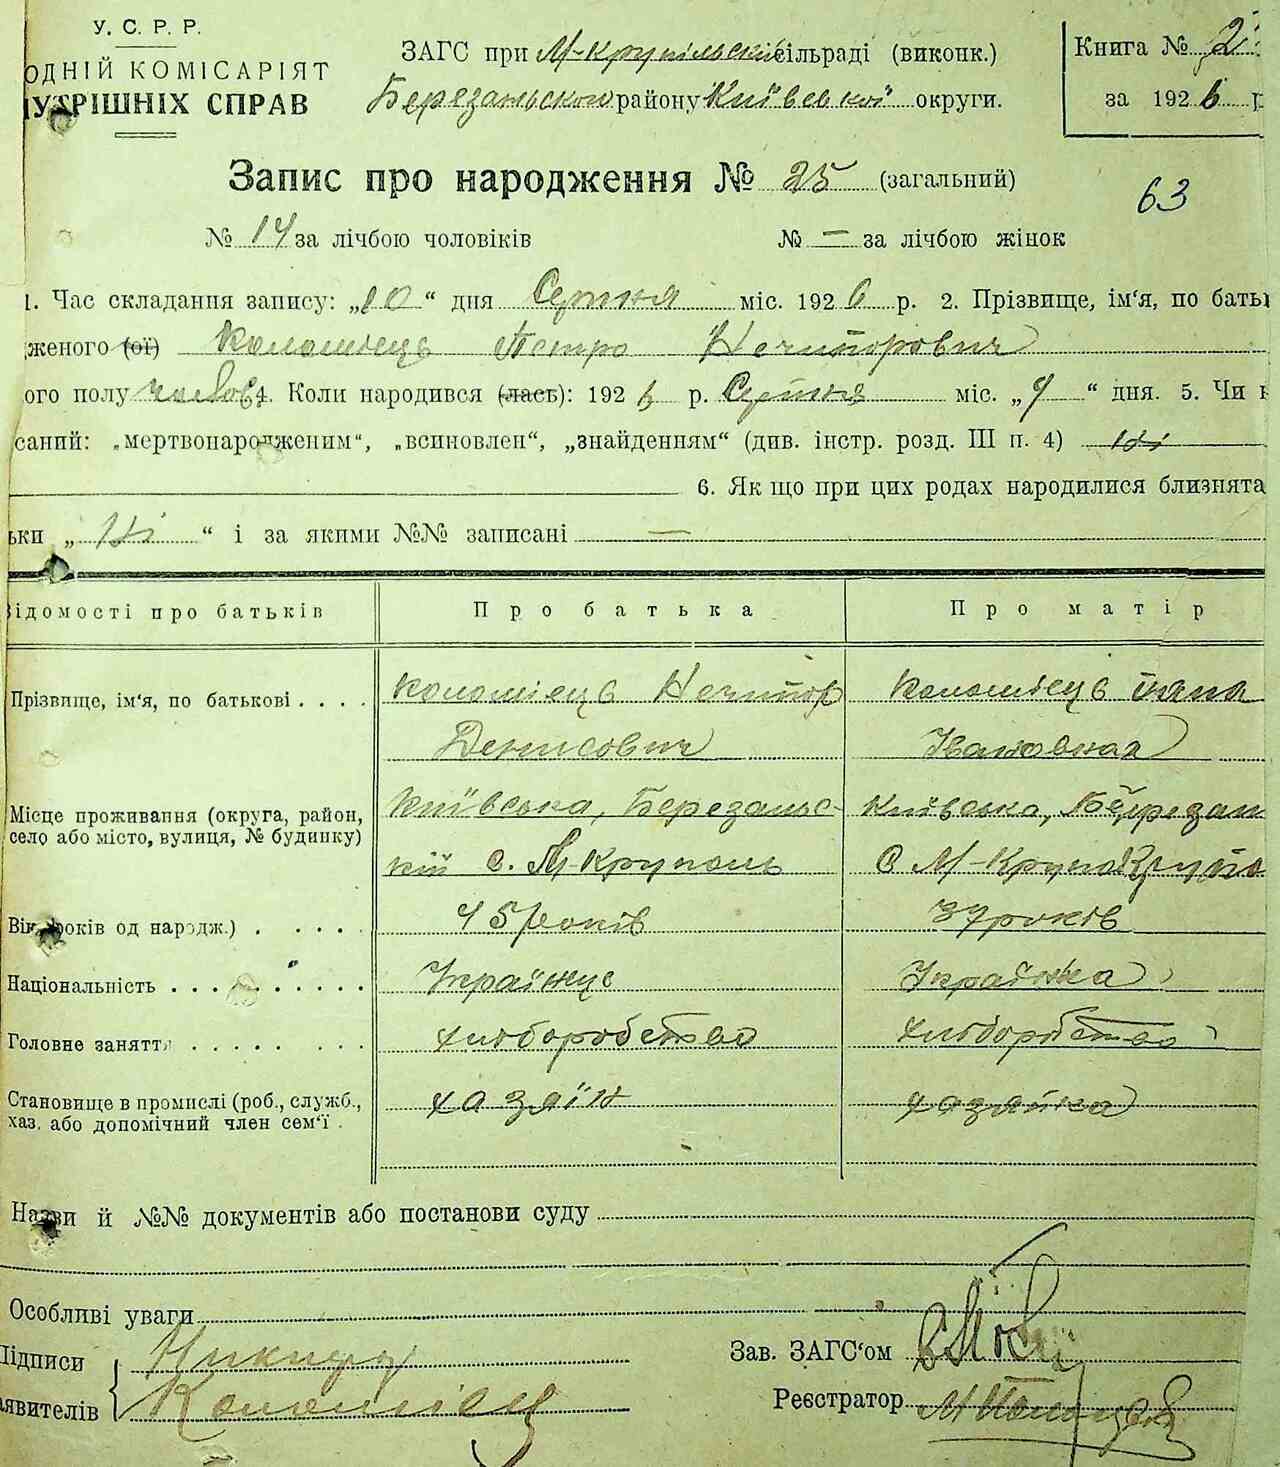 У. С. Р. Р.
ОДНІЙ КОМІСАРІЯТ
УТРІШНІХ СПРАВ
ЗАГС при М-Крупільській сільраді (виконк.)
Березанського району Київської округи.
Книга № 2
за 1926 р
Запис про народження № 25 (загальний)
63
№ 14 за лічбою чоловіків № — за лічбою жінок
1. Час складання запису: „10“ дня Серпня міс. 1926 р. 2. Прізвище, ім‘я, по баты
женого (ої) Коломієць Петро Нечипорович
ого полу чолов. 4. Коли народився (лась): 1926 р. Серпня міс. „9“ дня. 5. Чи н
саний: „мертвонародженим“, „всиновлен“, „знайденням“ (див. інстр. розд. III п. 4) Ні
6. Як що при цих родах народилися близнята
ьки „Ні“ і за якими №№ записані —
Відомості про батьків Про батька Про матір
Прізвище, ім‘я, по батькові . . . . Коломієць Нечипор Коломієць
Денисович Івановна
Місце проживання (округа, район, Київська, Березансь- Київська, Березан
село або місто, вулиця, № будинку) кий с. М-Круполь с М-Крупо
Вік років од народж.) . . . . . 45 років 37 років
Національність . . . . . . . . . Українець Українка
Головне заняття . . . . . . . . . хліборобство хліборобство
Становище в промислі (роб., служб., хазяїн хазяйка
хаз. або допомічний член сем‘ї .
Назви й №№ документів або постанови суду
Особливі уваги
Підписи
аявителів Коломієц
Зав. ЗАГС‘ом
Реєстратор